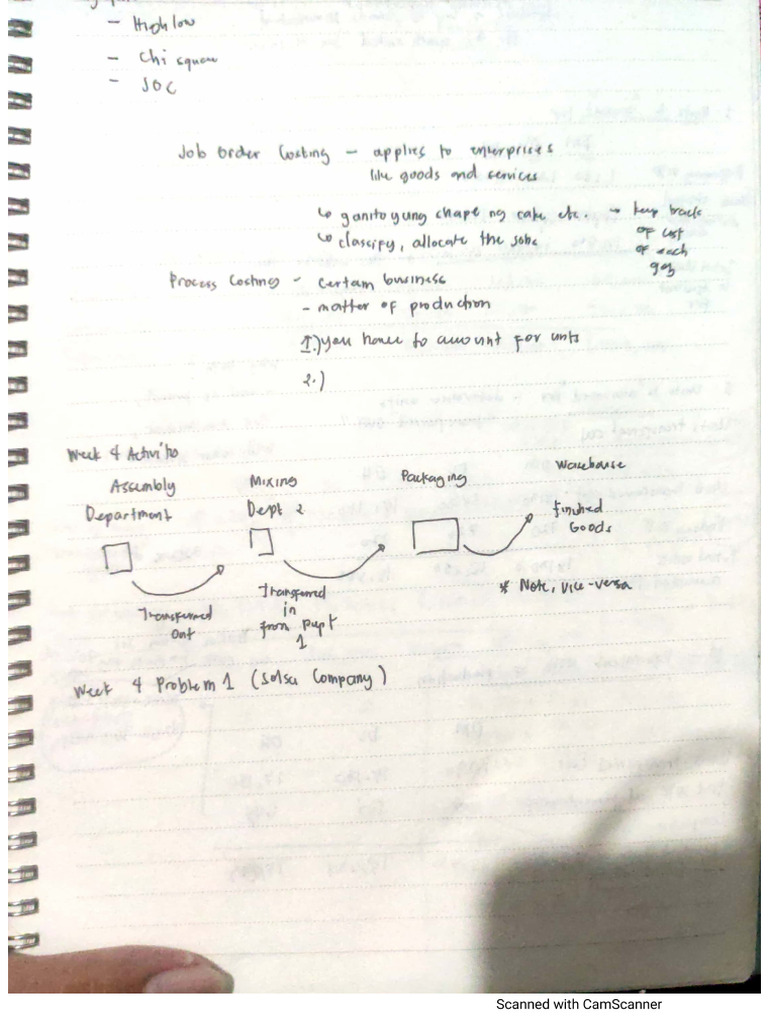 - High low
- Chi square
- JOC
Job Order Costing - applies to enterprises
like goods and services
↳ ganito yung shape ng cake etc. → keep track
of cost
of each
↳ classify, allocate the jobs
Process Costing - certain business
- matter of production
1.) you have to account for units
2.)
Week 4 Activity
Assembly
Department
Mixing
Dept 2
Packaging
Warehouse
finished
Goods
Transferred
out
Transferred
in
from Dept
1
* Note, vice-versa
Week 4 Problem 1 (Salsa Company)
Scanned with CamScanner